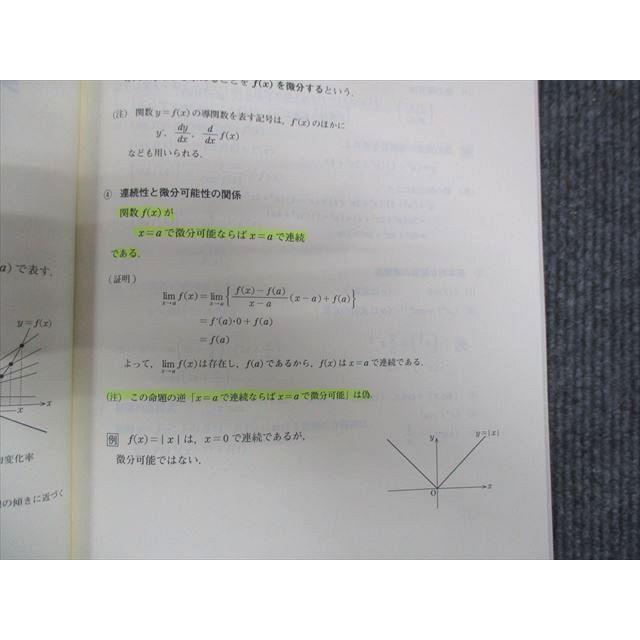 a) で表す.
y=f(x)
x
x
均変化率
の傾きに近づく
を f(x) を微分するという.
(注) 関数 y=f(x) の導関数を表す記号は, f'(x) のほかに
y', dy/dx, d/dx f(x)
なども用いられる.
④ 連続性と微分可能性の関係
関数 f(x) が
x=a で微分可能ならば x=a で連続
である.
(証明)
lim_{x→a} f(x)=lim_{x→a}{ (f(x)-f(a))/(x-a) (x-a)+f(a)}
=f'(a)・0+f(a)
=f(a)
よって, lim_{x→a} f(x) は存在し, f(a) であるから, f(x) は x=a で連続である.
(注) この命題の逆「x=a で連続ならば x=a で微分可能」は偽.
例 f(x)=|x| は, x=0 で連続であるが,
微分可能ではない.
y
y=|x|
O
x